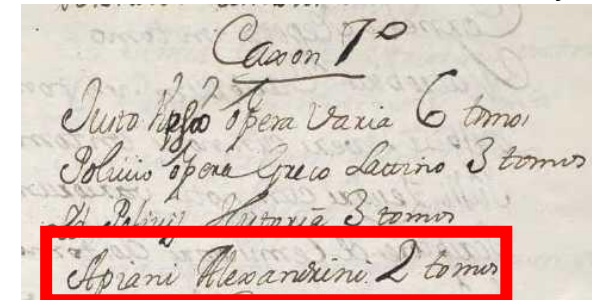 Caxon 7º
Justo Lipsio opera Varia 6 tomos
Polivio opera Greco Lattino 3 tomos
Polivij Historia 3 tomos
Apiani Alexandrini 2 tomos